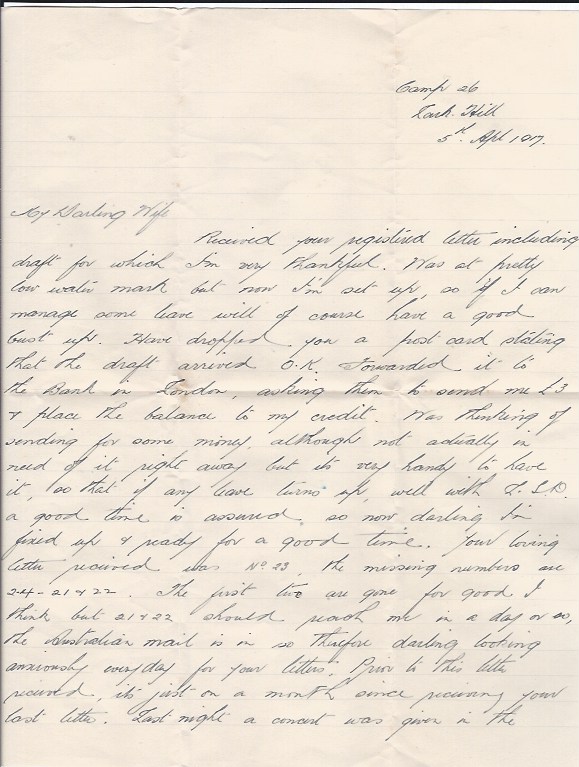 Camp 26
Lark Hill
5th Apl 1917.
My Darling Wife
Received your registered letter including
draft for which I'm very thankful. Was at pretty
low water mark but now I'm set up, so if I can
manage some leave will of course have a good
bust up. Have dropped you a post card stating
that the draft arrived O.K. Forwarded it to
the Bank in London, asking them to send me £3
& place the balance to my credit. Was thinking of
sending for some money, although not actually in
need of it right away but its very handy to have
it, so that if any leave turns up, well with L.S.D.
a good time is assured, so now darling I'm
fixed up & ready for a good time. Your loving
letter received was No 23, the missing numbers are
2-4-21 & 22. The first two are gone for good I
think but 21 & 22 should reach me in a day or so,
the Australian mail is in so therefore darling looking
anxiously every day for your letters. Prior to this letter
received, it's just on a month since receiving your
last letter. Last night a concert was given in the